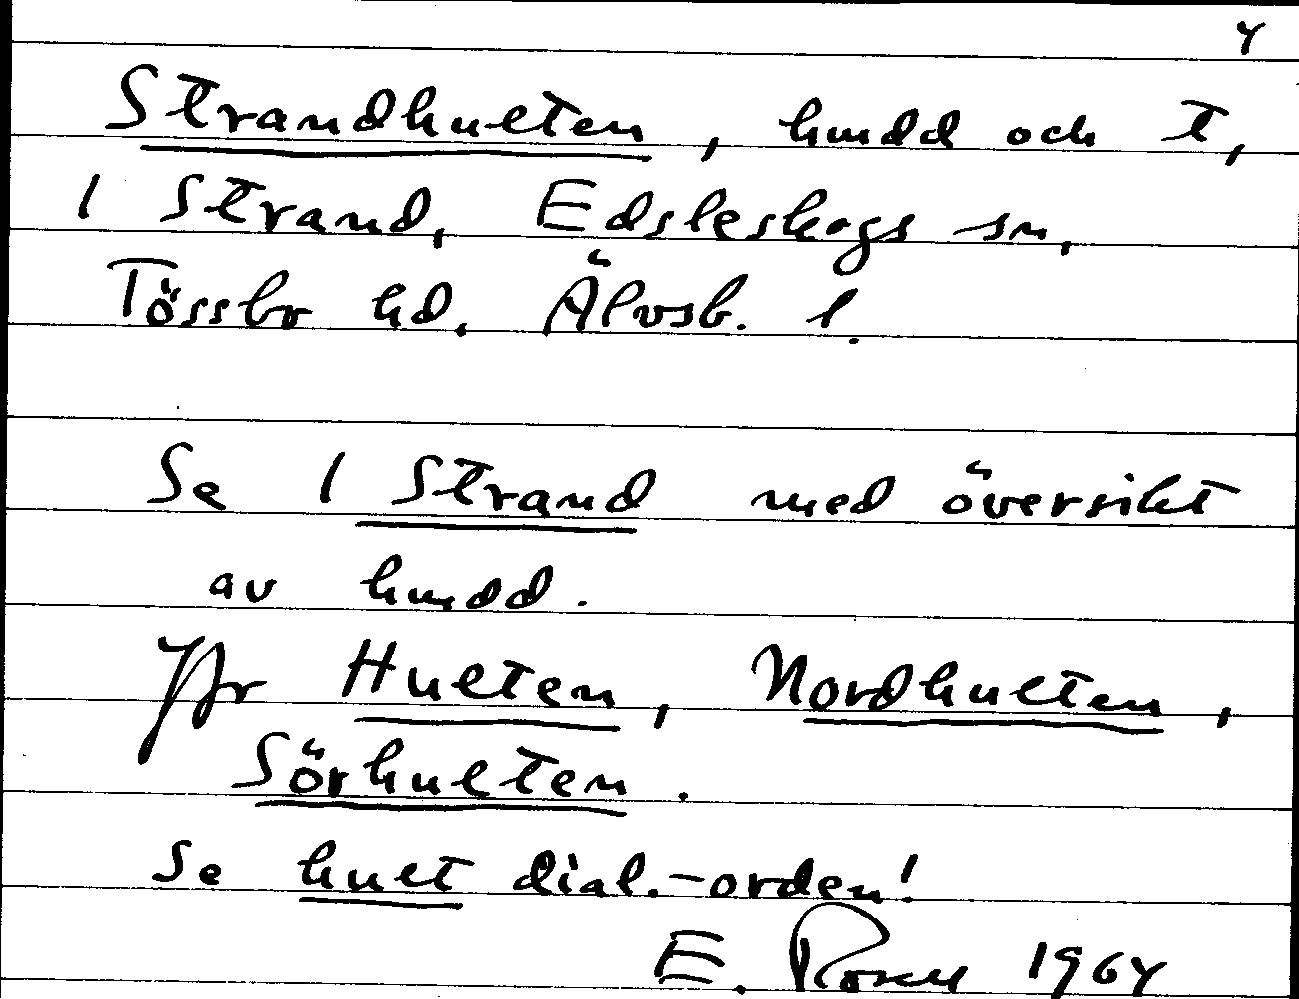 4
Strandhulten, hmdd och t,
1 Strand, Edsleskogs sn,
Tössbo hd. Älvsb. l.
Se 1 Strand med översikt
av hmdd.
Jfr Hulten, Nordhulten,
Sörhulten.
Se hult dial.-orden!
E. Rosell 1964